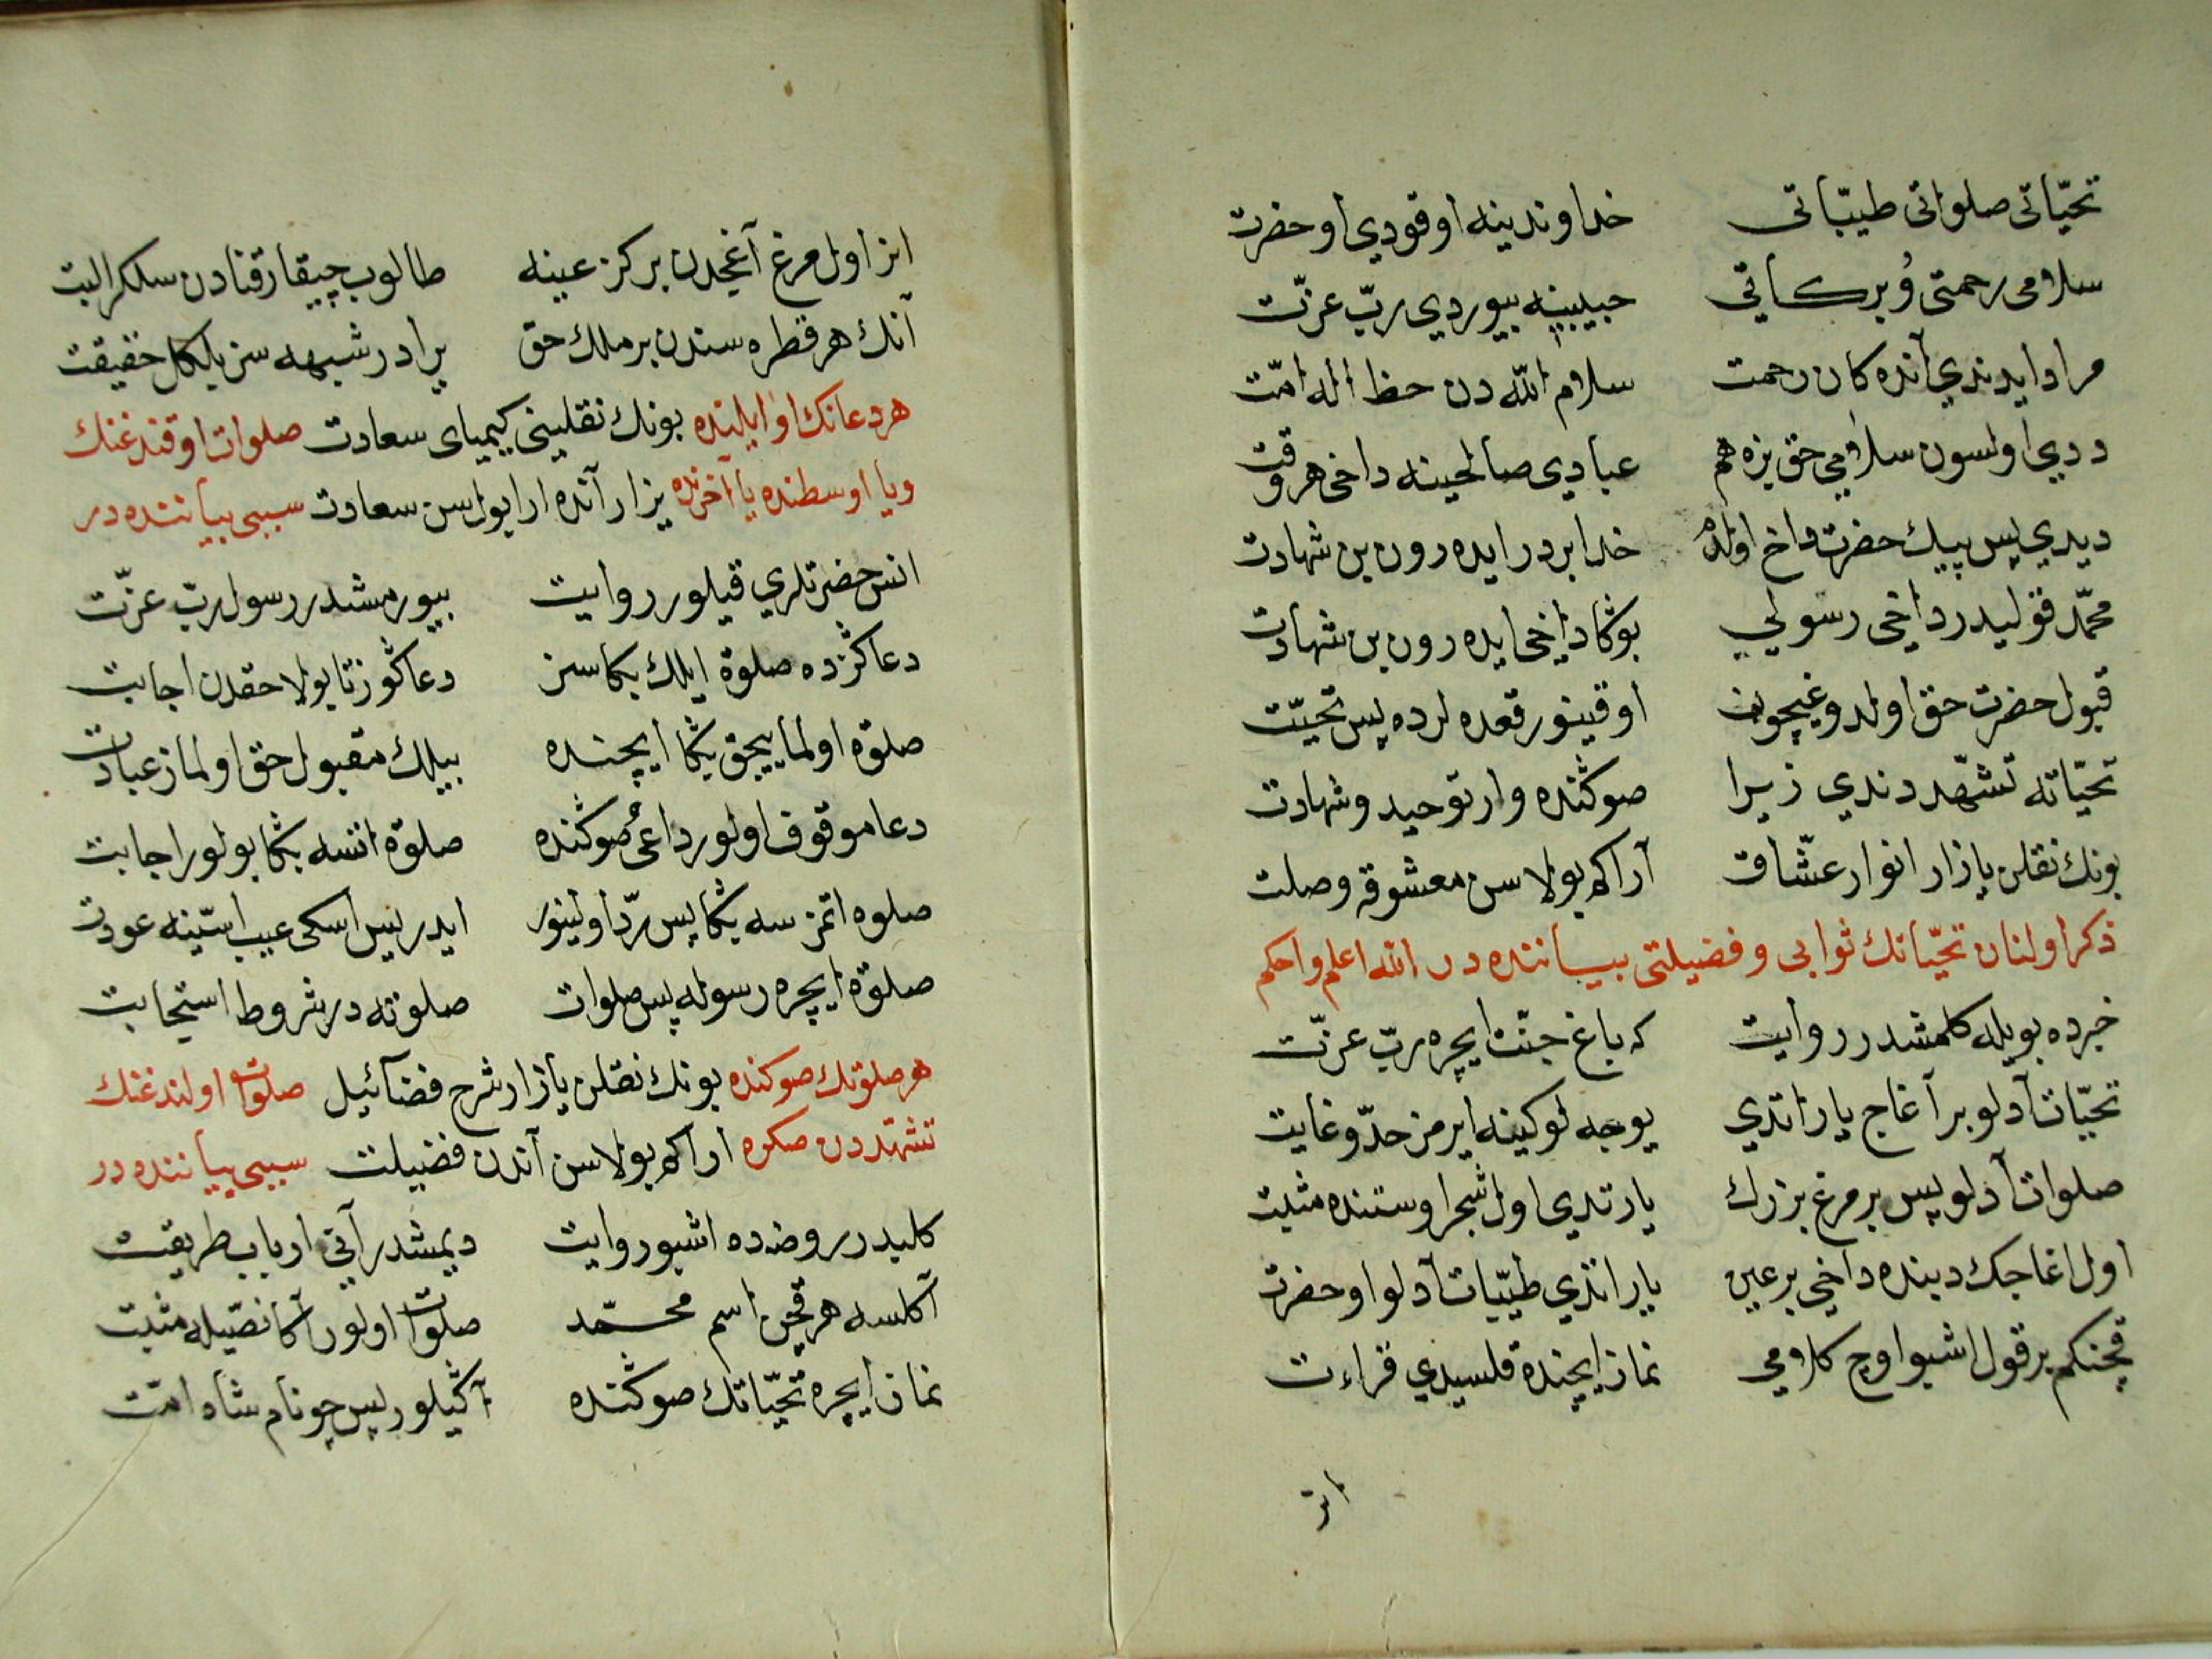 تحیّاتی صلواتی طیبّاتی خداوندینه اوقودی او حضرت
سلامی رحمتی وُ برکاتی حبیبینه بیوردی ربّ عزّت
مراد ایدندی آنده کان رحمت سلام اللّه دن حظ اله امّت
ددی اولسون سلامی حق بزه هم عبادی صالحینه داخی هر وقت
دیدی پس پیك حضرت داخ اولدم خدا بردر ایده رون بن شهادت
محمّد قولیدر داخی رسولی بوڭا داخی ایده رون بن شهادت
قبول حضرت حق اولدوغیچون اوقینور قعده لرده پس تحیّت
تحیّاته تشهّد دندی زیرا صوڭنده وار توحید و شهادت
بونك نقلن یازار انوار عشّاق آراكه بولاسن معشوقه وصلت
ذکر اولنان تحیّاتك ثوابی و فضیلتی بیاننده در اللّه اعلم واحکم
خبرده بویله کلمشدر روایت که باغ جنّت ایچره ربّ عزّت
تحیّات آدلو بر آغاج یاراتدی یوجه لوکینه ایرمز حدّ و غایت
صلوات آدلو پس بر مرغ بزرك یارتدی اول شجر اوستنده مثبت
اول اغاجك دیبنده داخی بر عین یاراتدی طیّبات آدلو او حضرت
قچنکم بر قول اشبو اوچ کلامی نماز ایچنده قلسیدی قراءت
انر
انر اول مرغ آغجدن بر کز عینه طالوب چیقار قنادن سلکر البت
آنك هر قطره سندن بر ملك حق یرادر شبهه سز بلکل حقیقت
هر دعانك اوایلینده بونك نقلینی کیمیای سعادت صلوات اوقندغنك
ویا اوسطنده یا آخرنده یزار آنده ارا بولاسن سعادت سببی بیاننده در
انس حضرتلری قیلور روایت بیورمشدر رسول ربّ عزّت
دعا کڭزده صلوة ایلك بکا سز دعا کڭوز تا بولا حقدن اجابت
صلوة اولمایجق بڭا ایچنده بیلك مقبول حق اولماز عبادت
دعا موقوف اولور داعئ صوڭنده صلوة اتسه بڭا بولور اجابت
صلوه اتمز سه بڭا پس ردّ اولینور ایدر پس اسکی عیب استینه عودت
صلوة ایچره رسوله پس صلوات صلوته در شروط استجابت
هر صلوتك صوکنده بونك نقلن یازار شرح فضائیل صلوات اولندغنك
تشهّددن صکره اراكه بولاسن آندن فضیلت سببی بیاننده در
کلیدر روضه ده اشبو روایت دیمشدر آنی ارباب طریقت
آکلسه هر قچن اسم محمّد صلوات اولور آکا نصّیله مثبت
نماز ایچره تحیّاتك صوڭنده آڭیلور پس چو نام شاه امّت